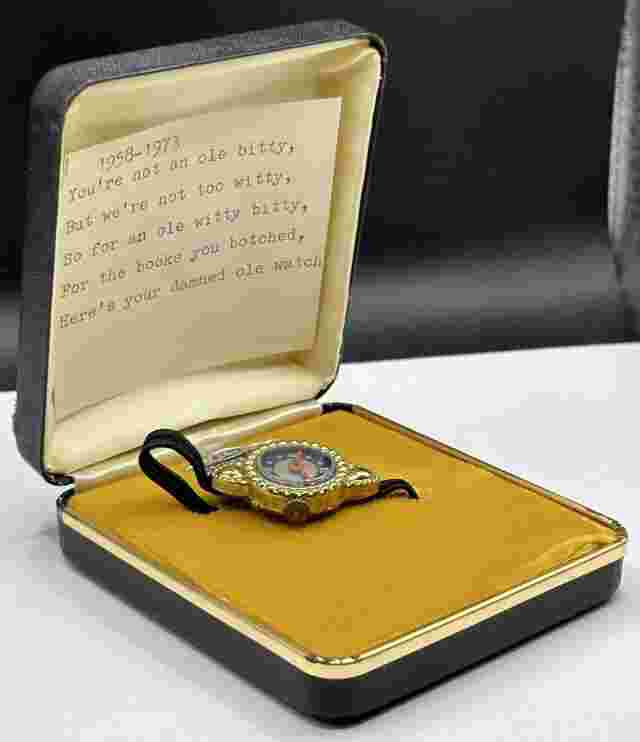 1958-1973
You're not an ole bitty,
But we're not too witty,
So for an ole witty bitty,
For the books you botched,
Here's your damned ole watch